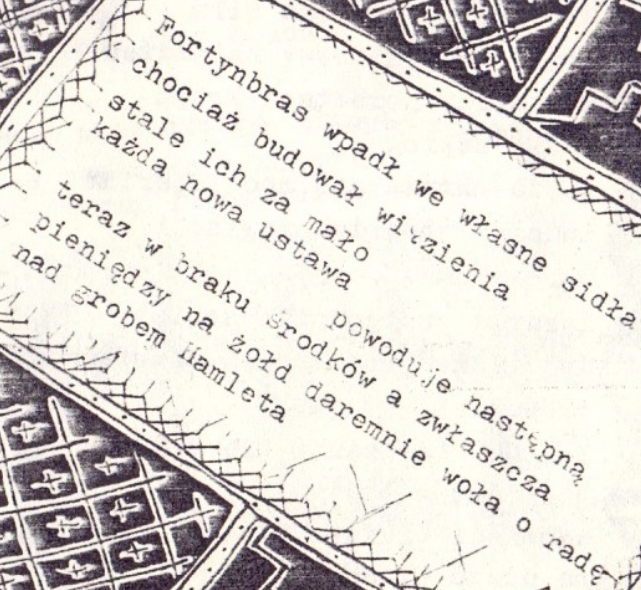 Fortynbras wpadł we własne sidła
chociaż budował więzienia
stale ich za mało
każda nowa ustawa
powoduje następną
teraz w braku środków a zwłaszcza
pieniędzy na żołd daremnie woła o radę
nad grobem Hamleta